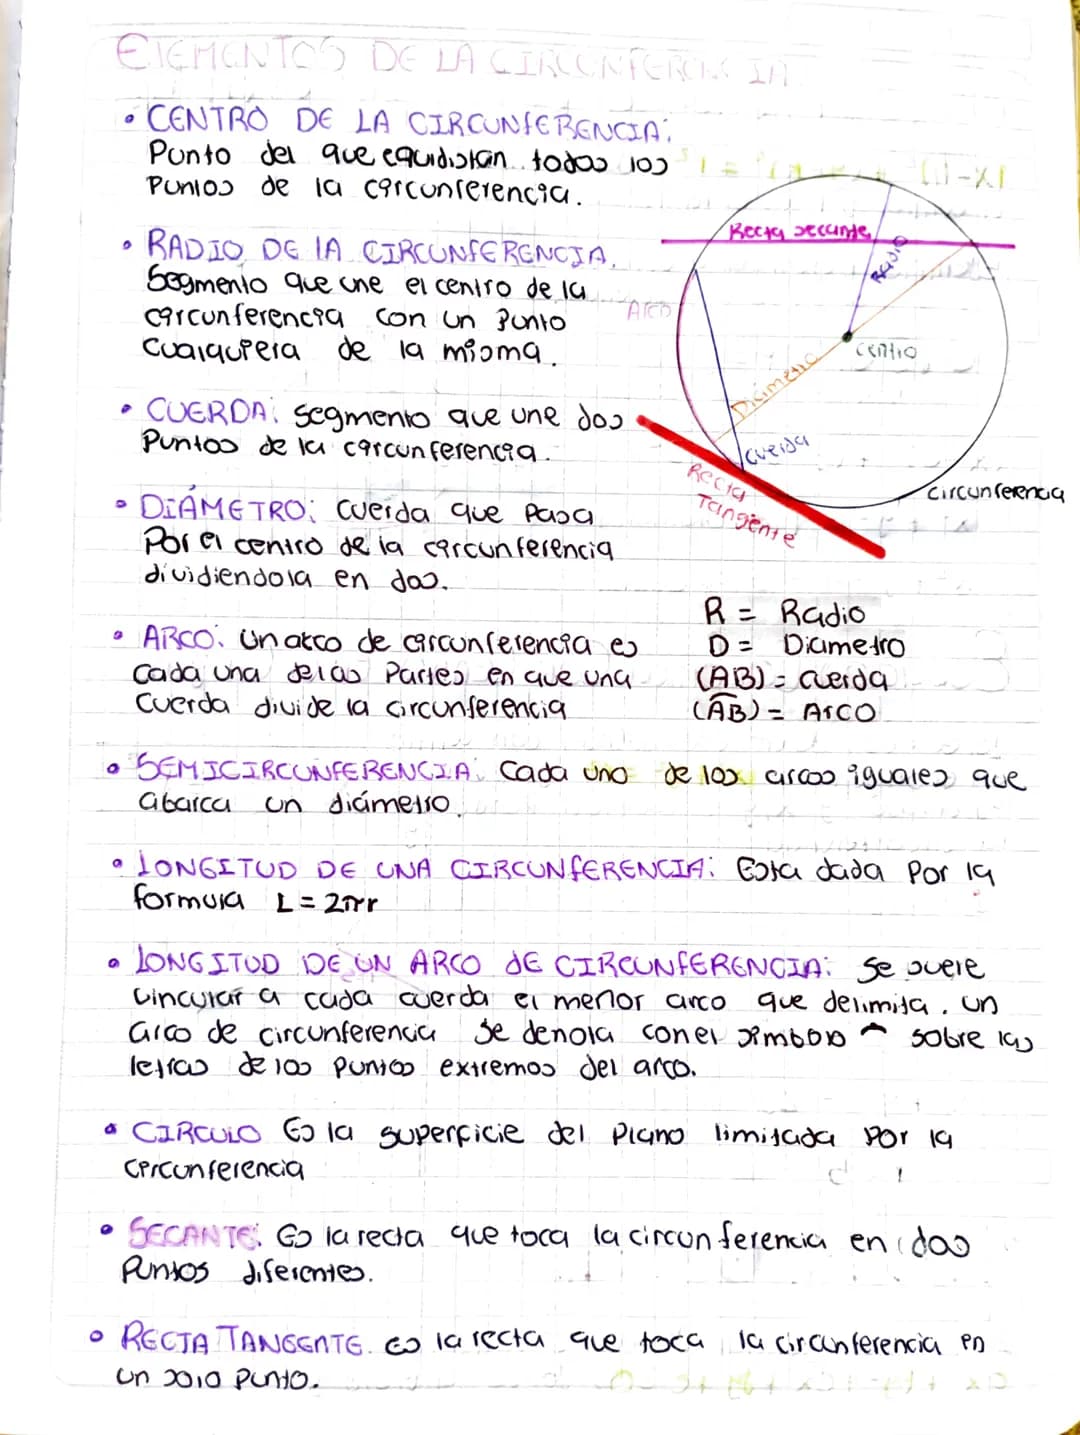 ELEMENTOS DE LA CIRCUNFERENCIA
• CENTRO DE LA CIRCUNFERENCIA:
Punto del que equidistan todos los
Puntos de la circunferencia.
• RADIO DE LA CIRCUNFERENCIA.
Segmento que une el centro de la
circunferencia con un Punto
Cualquiera de la misma.
• CUERDA: Segmento que une dos
Puntos de la circunferencia.
• DIÁMETRO: Cuerda que Pasa
Por el centro de la circunferencia
dividiendola en dos.
• ARCO: Un arco de circunferencia es
Cada una de las Partes en que una
Cuerda divide la circunferencia
Recta secante
Radio
Arco
Centro
Diametro
Cuerda
Recta
Tangente
Circunferencia
R = Radio
D = Diametro
(AB) = Cuerda
(A͡B) = Arco
• SEMICIRCUNFERENCIA: Cada uno de los arcos iguales que
abarca un diámetro.
• LONGITUD DE UNA CIRCUNFERENCIA: Esta dada Por la
formula L = 2πr
• LONGITUD DE UN ARCO DE CIRCUNFERENCIA: Se suele
Vincular a cada cuerda el menor arco que delimita. Un
arco de circunferencia Se denota con el simbolo ⌢ sobre las
letras de los puntos extremos del arco.
• CIRCULO Es la superficie del Plano limitada Por la
circunferencia
• SECANTE: Es la recta que toca la circunferencia en dos
Puntos diferentes.
• RECTA TANGENTE. Es la recta que toca la circunferencia en
un solo Punto.